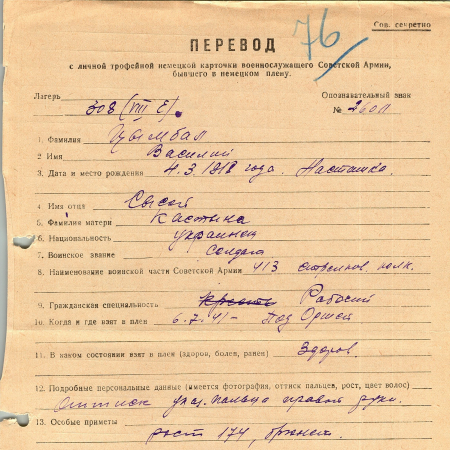 Сов. секретно
76
ПЕРЕВОД
с личной трофейной немецкой карточки военнослужащего Советской Армии,
бывшего в немецком плену.
Лагерь
Опознавательный знак
308 (VIII E).
№
1. Фамилия Цымбал
2. Имя Василий
3. Дата и место рождения 4.3.1918 года. Насташка
4. Имя отца Сысой
5. Фамилия матери Кастына
6. Национальность украинец
7. Воинское звание Солдат
8. Наименование воинской части Советской Армии 413 стрелков. полк.
9. Гражданская специальность Рабочий
10. Когда и где взят в плен 6.7.41- под Оршей
11. В каком состоянии взят в плен (здоров, болен, ранен) Здоров.
12. Подробные персональные данные (имеется фотография, оттиск пальцев, рост, цвет волос)
Оттиск указ. пальца правой руки.
13. Особые приметы
рост 174, брюнет.